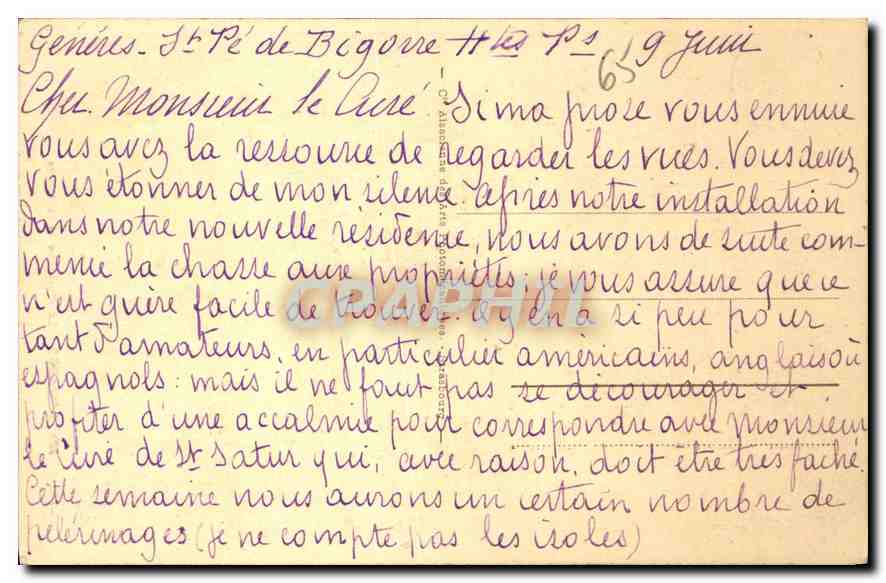 Genéres - St Pé de Bigorre Htes Ps 9 Juin
65
Cher Monsieur le Curé. Si ma prose vous ennuie
vous avez la ressource de regarder les vues. Vous devez
vous étonner de mon silence. Après notre installation
dans notre nouvelle résidence, nous avons de suite com-
mencé la chasse aux propriétés; je vous assure que ce
n'est guère facile de trouver. Il y en a si peu pour
tant d'amateurs, en particulier américains, anglais ou
espagnols: mais il ne faut pas se décourager et
profiter d'une accalmie pour correspondre avec Monsieur
le Curé de St Satur qui, avec raison, doit être très faché.
Cette semaine nous aurons un certain nombre de
pélérinages (je ne compte pas les isolés)
Cie Alsacienne des Arts Photomécaniques - Strasbourg
CPAPHIL